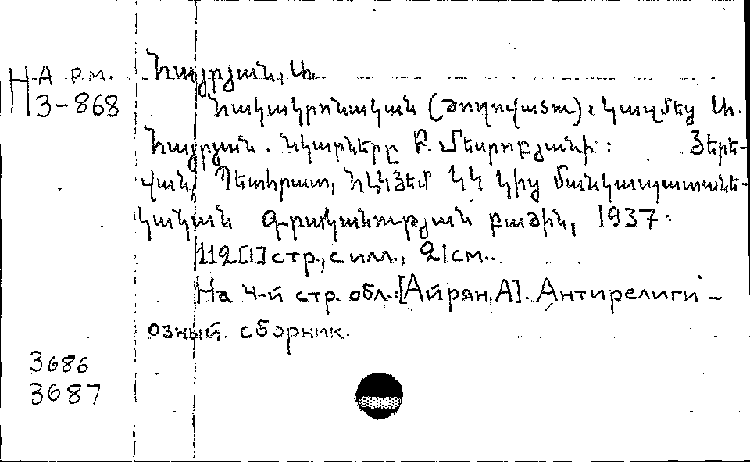 Н Арм.
3-868
Հայրյան, Ա.
Հակակրոնական (Ժողովածու): Կազմեց Ա.
Հայրյան. Նկարները Բ. Մեսրոբյանի: Յերե-
վան, Պետհրատ, ՀԼԿՅԵՄ ԿԿ կից մանկապատանե-
կական գրականության բաժին, 1937.
112 [1] стр., с илл., 21 см.
На 4-й стр. обл.: [Айрян, А]. Антирелиги-
озный сборник.
3686
3687